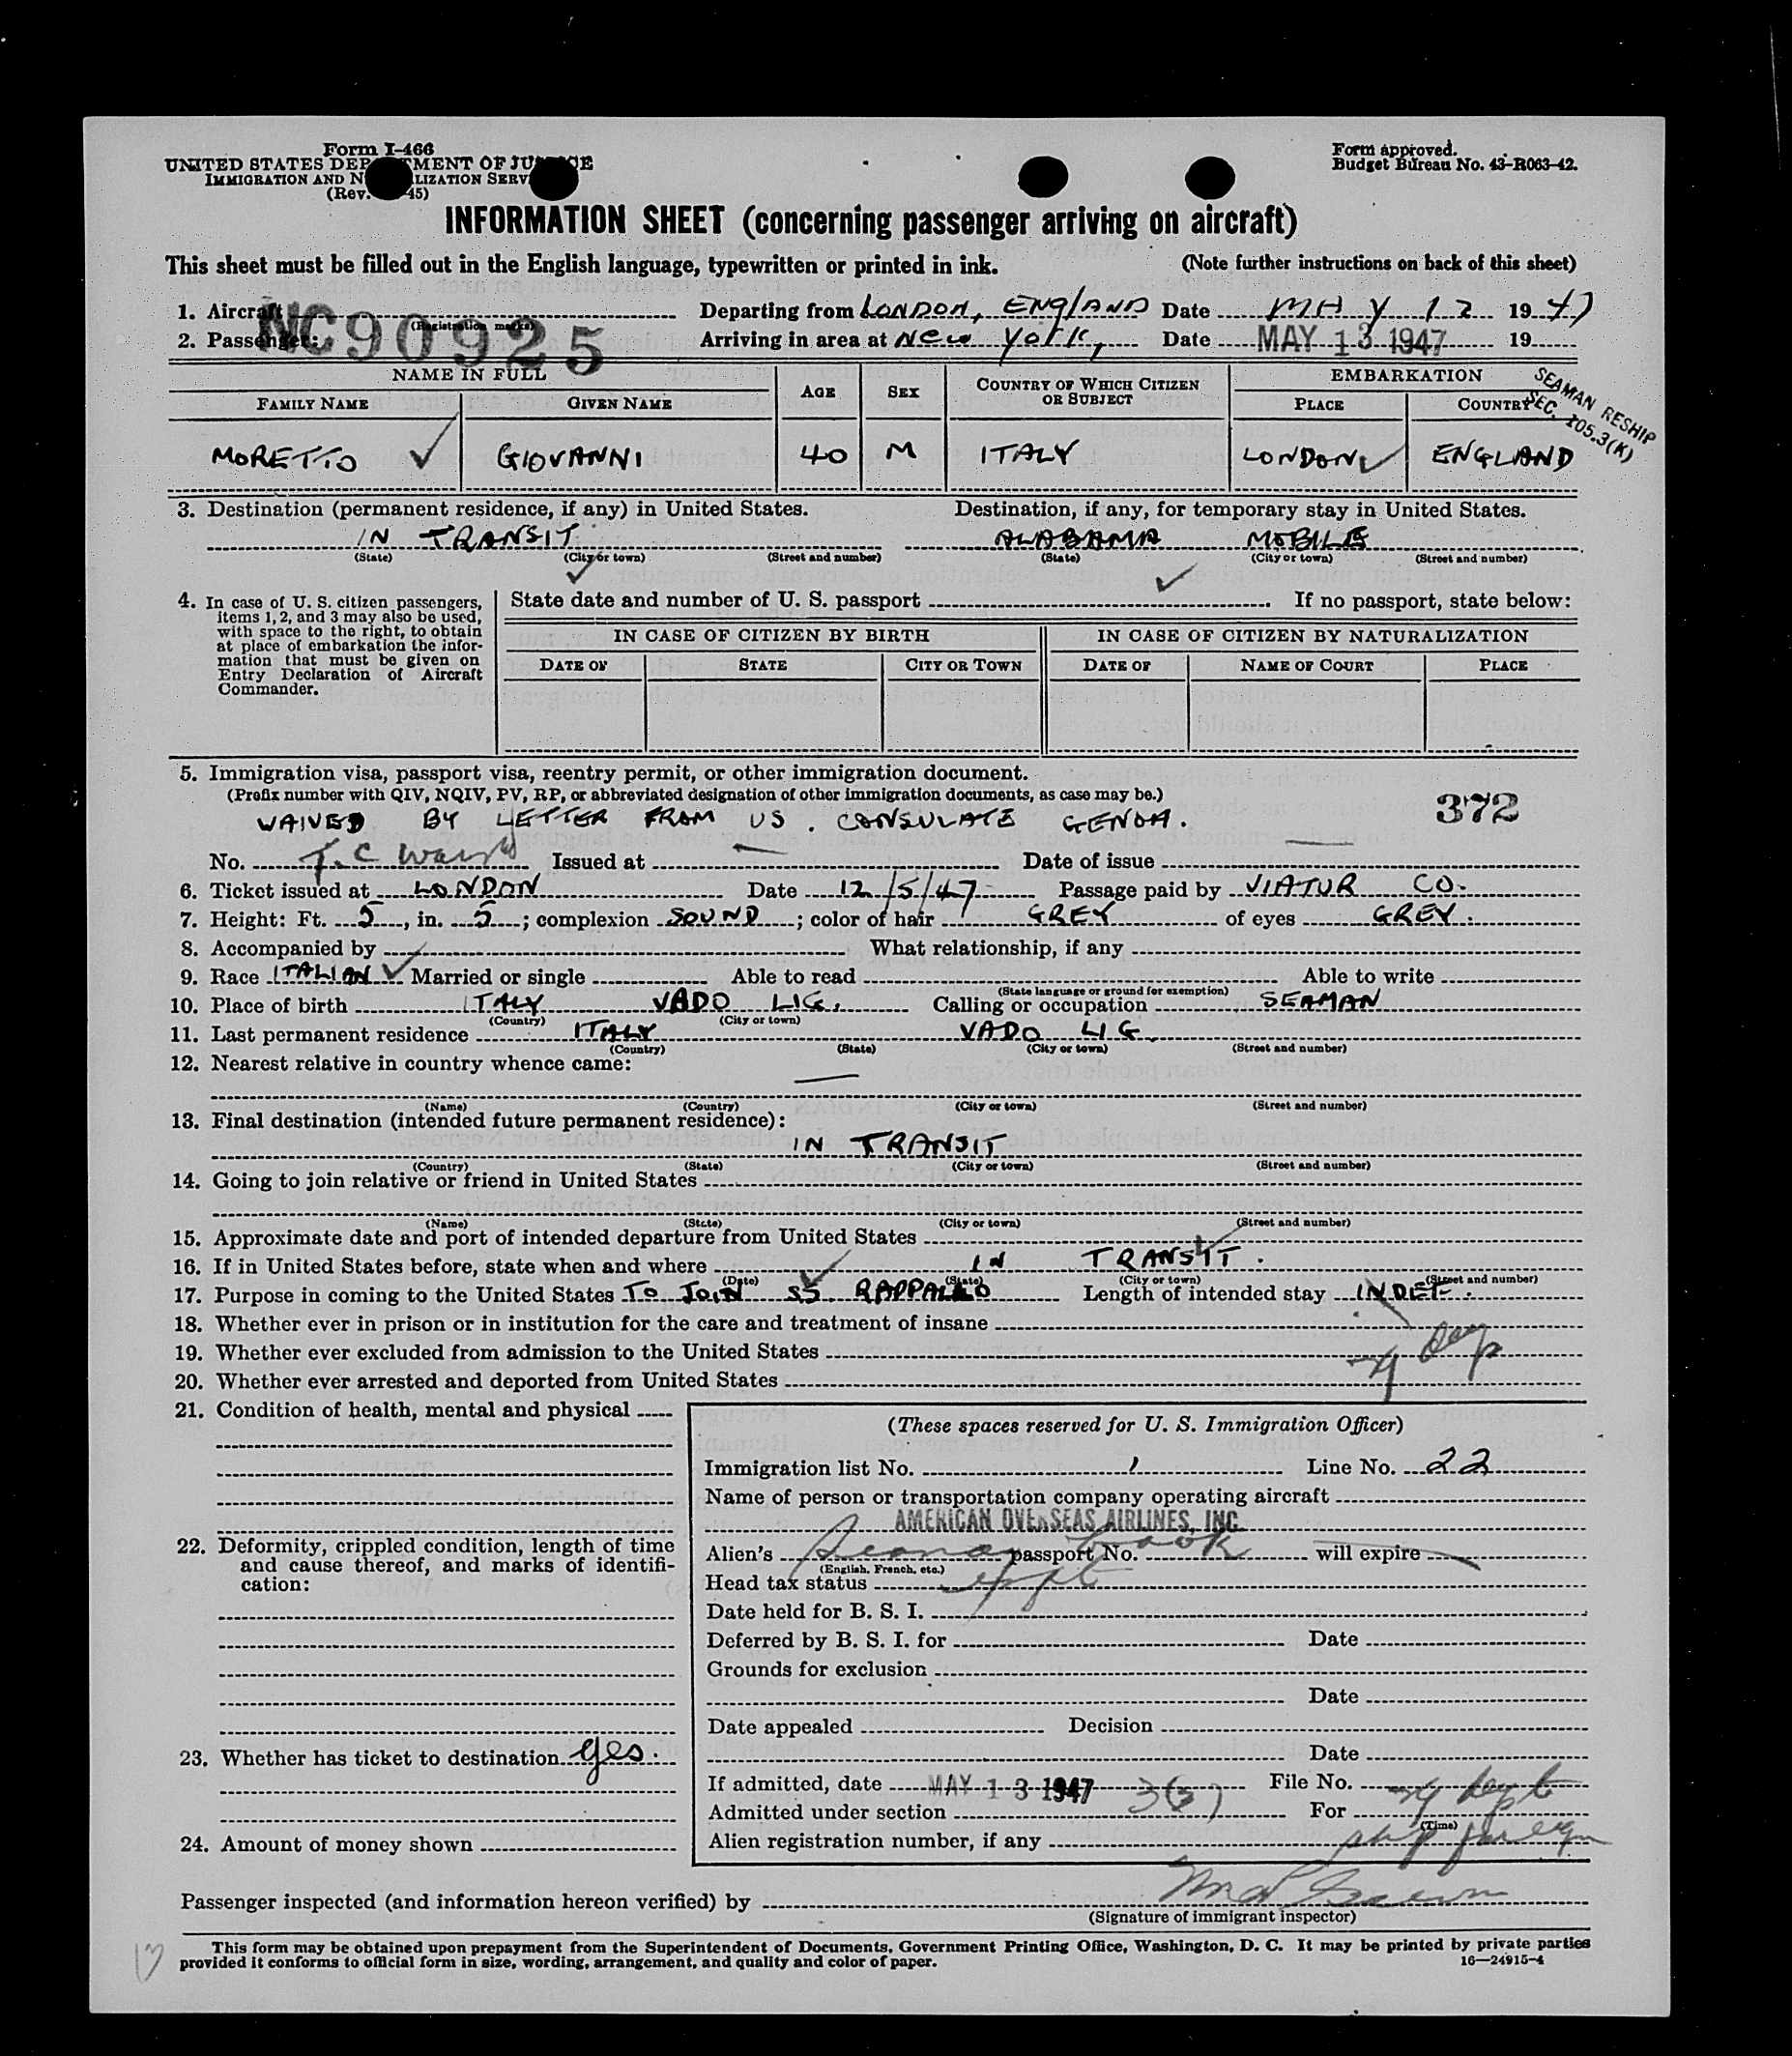 Form I-466
UNITED STATES DEP MENT OF JU E
IMMIGRATION AND N LIZATION SERV
(Rev. 45)
Form approved.
Budget Bureau No. 43-R063-42.
INFORMATION SHEET (concerning passenger arriving on aircraft)
This sheet must be filled out in the English language, typewritten or printed in ink. (Note further instructions on back of this sheet)
1. Aircraft NC90925 (Registration marks) Departing from LONDON, ENGLAND Date MAY 12 1947
2. Passenger: Arriving in area at New York, Date MAY 13 1947 19
NAME IN FULL AGE SEX COUNTRY OF WHICH CITIZEN OR SUBJECT EMBARKATION
FAMILY NAME GIVEN NAME PLACE COUNTRY
SEAMAN RESHIP
SEC. 105.3(K)
MORETTO GIOVANNI 40 M ITALY LONDON ENGLAND
3. Destination (permanent residence, if any) in United States. Destination, if any, for temporary stay in United States.
IN TRANSIT ALABAMA MOBILE
(State) (City or town) (Street and number) (State) (City or town) (Street and number)
4. In case of U. S. citizen passengers, items 1, 2, and 3 may also be used, with space to the right, to obtain at place of embarkation the information that must be given on Entry Declaration of Aircraft Commander.
State date and number of U. S. passport . If no passport, state below:
IN CASE OF CITIZEN BY BIRTH IN CASE OF CITIZEN BY NATURALIZATION
DATE OF STATE CITY OR TOWN DATE OF NAME OF COURT PLACE
5. Immigration visa, passport visa, reentry permit, or other immigration document.
(Prefix number with QIV, NQIV, PV, RP, or abbreviated designation of other immigration documents, as case may be.)
WAIVED BY LETTER FROM US. CONSULATE GENOA. 372
No. Issued at Date of issue
6. Ticket issued at LONDON Date 12/5/47 Passage paid by VIATUR CO.
7. Height: Ft. 5, in. 5; complexion SOUND; color of hair GREY of eyes GREY.
8. Accompanied by What relationship, if any
9. Race ITALIAN Married or single Able to read Able to write
(State language or ground for exemption)
10. Place of birth ITALY VADO LIG. Calling or occupation SEAMAN
(Country) (City or town)
11. Last permanent residence ITALY VADO LIG.
(Country) (State) (City or town) (Street and number)
12. Nearest relative in country whence came:
(Name) (Country) (City or town) (Street and number)
13. Final destination (intended future permanent residence):
IN TRANSIT
(Country) (State) (City or town) (Street and number)
14. Going to join relative or friend in United States
(Name) (State) (City or town) (Street and number)
15. Approximate date and port of intended departure from United States
16. If in United States before, state when and where IN TRANSIT.
(Date) (State) (City or town) (Street and number)
17. Purpose in coming to the United States TO JOIN SS. RAPPALLO Length of intended stay INDEF.
18. Whether ever in prison or in institution for the care and treatment of insane
19. Whether ever excluded from admission to the United States
20. Whether ever arrested and deported from United States
21. Condition of health, mental and physical
(These spaces reserved for U. S. Immigration Officer)
Immigration list No. 1 Line No. 22
Name of person or transportation company operating aircraft
AMERICAN OVERSEAS AIRLINES, INC.
22. Deformity, crippled condition, length of time and cause thereof, and marks of identification:
Alien's Seaman book passport No. will expire
(English, French, etc.)
Head tax status
Date held for B. S. I.
Deferred by B. S. I. for Date
Grounds for exclusion
Date
Date appealed Decision
23. Whether has ticket to destination yes.
Date
If admitted, date MAY 13 1947 File No.
Admitted under section 3(3) For
(Time)
24. Amount of money shown
Alien registration number, if any
Passenger inspected (and information hereon verified) by
(Signature of immigrant inspector)
This form may be obtained upon prepayment from the Superintendent of Documents, Government Printing Office, Washington, D. C. It may be printed by private parties
provided it conforms to official form in size, wording, arrangement, and quality and color of paper. 16—24915-4